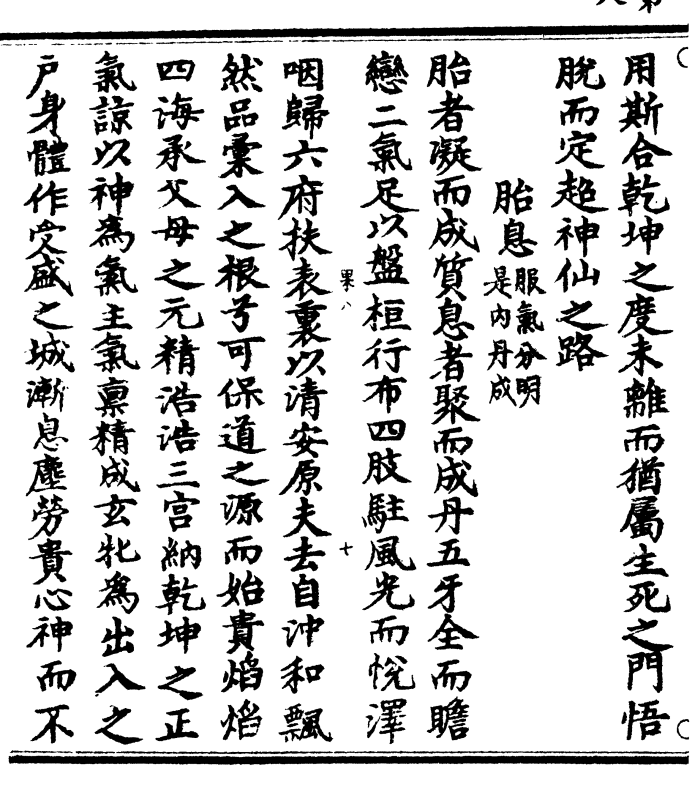 用斯合乾坤之度未離而猶屬生死之門悟
脫而定超神仙之路
胎息服氣分明是內丹成
胎者凝而成質息者聚而成丹五牙全而瞻
戀二氣足以盤桓行布四肢駐風光而悅澤
果八 十
咽歸六府扶表裏以清安原夫去自沖和飄
然品彙入之根兮可保道之源而始貴焰焰
四海承父母之元精浩浩三宮納乾坤之正
氣諒以神為氣主氣禀精成玄牝為出入之
戶身體作受盛之城漸息塵勞貴心神而不